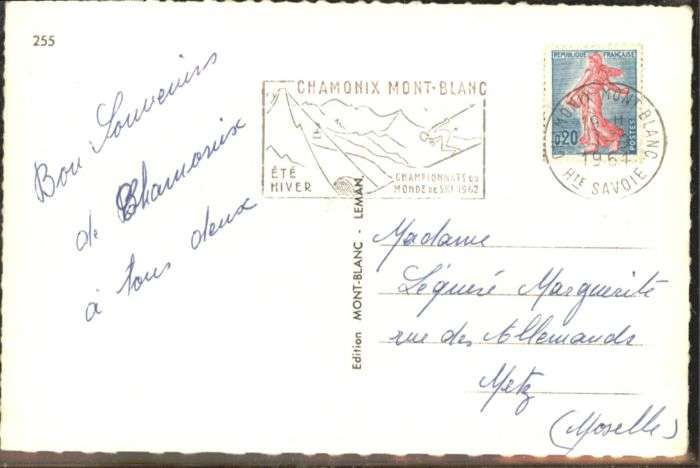 255
Bon Souvenirs
de Chamonix
à tous deux
CHAMONIX MONT-BLANC
ÉTÉ
HIVER
CHAMPIONNATS DU
MONDE DE SKI 1962
Edition MONT-BLANC - LEMAN
REPUBLIQUE FRANÇAISE
0,20
POSTES
CHAMONIX-MONT-BLANC
HTE SAVOIE
Madame
Marguerite
rue des Allemands
Metz
(Moselle)